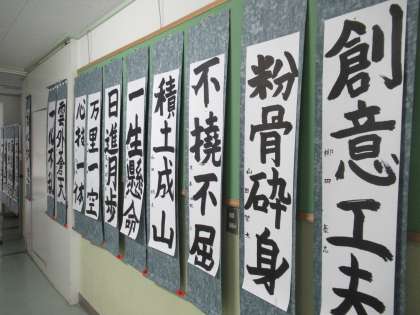 創意工夫
粉骨砕身
不撓不屈
積土成山
一生懸命
日進月歩
万里一空
心技一体
雲外蒼天